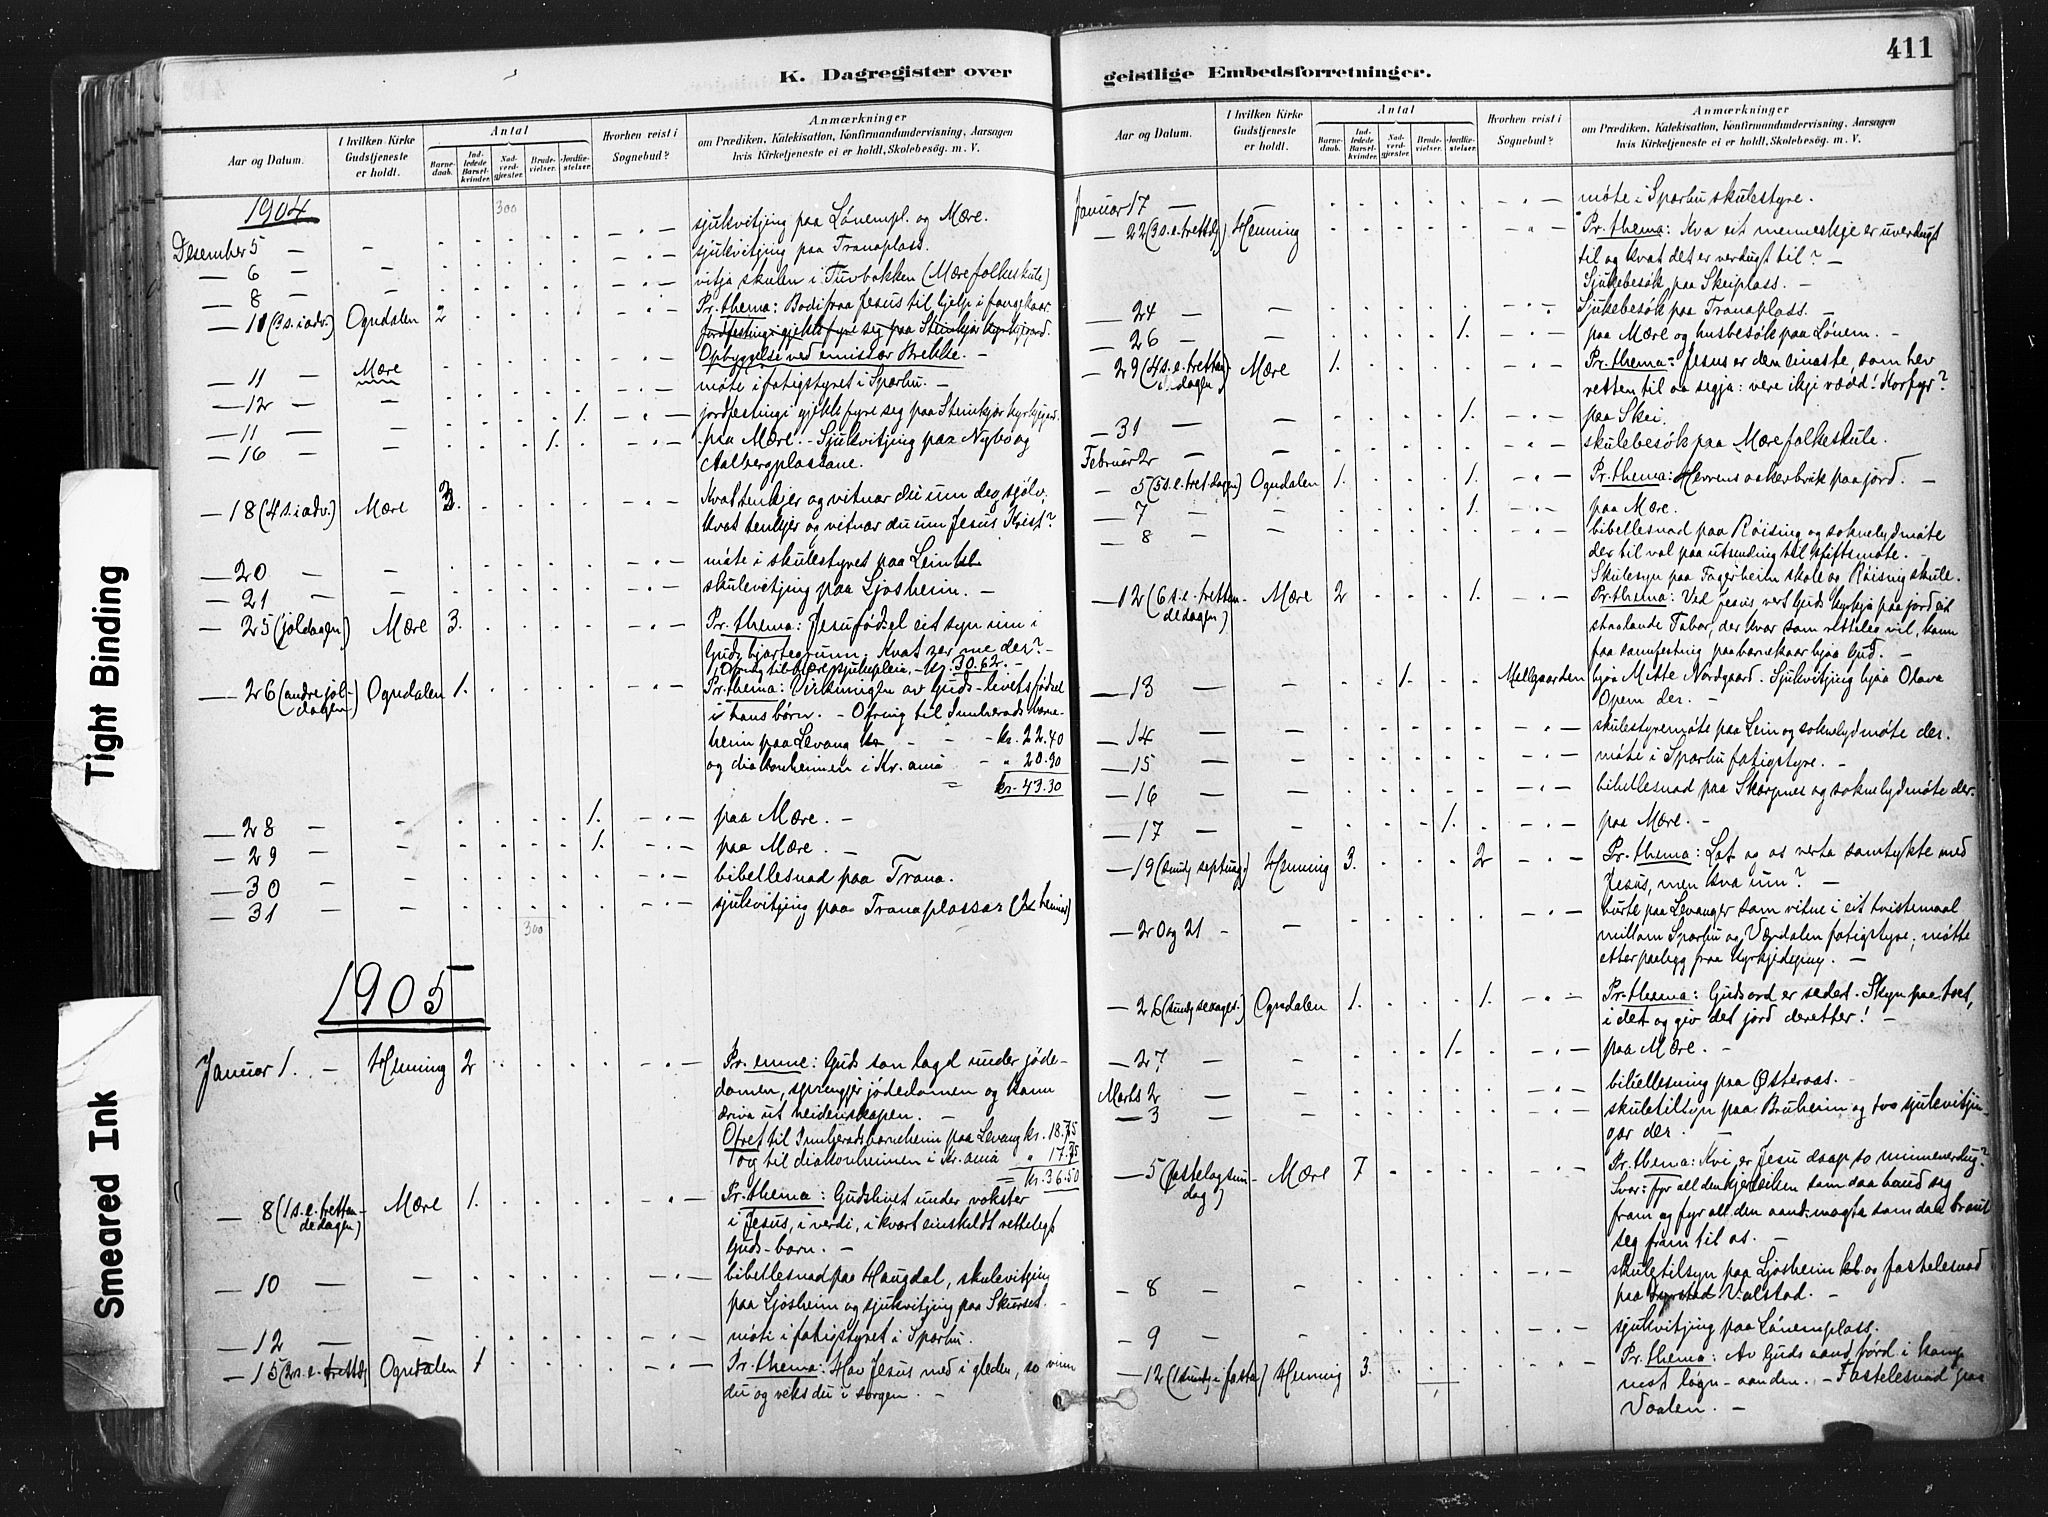 K. Dagregister over
Aar og Datum.
I hvilken Kirke Gudstjeneste er holdt.
Antal
Barnedaab.
Indledede Barselkvinder.
Nadverdgjæster.
Brudevielser.
Jordfæstelser.
Hvorhen reist i Sognebud?
Anmærkninger
om Prædiken, Katekisation, Konfirmandundervisning, Aarsagen
hvis Kirketjeneste ei er holdt, Skolebesøg. m. V.
1904
300
Desember 5 — - sjukvitjing paa Lønempl. og Mære.
— 6 — - sjukvitjing paa Tranaplass.
— 8 — - vitja skulen i Tuvbakken (Mære folkeskule)
— 11 (3 s. i adv.) Ogndalen 2 Pr. thema: Bod fraa Jesus til hjelp i fangekaar
jordfesting gjekk fyre seg paa Steinkjær kyrkjegard.
— 11 — Mære Opbyggelse ved emissær Brekke. —
— 12 — - møte i fatigstyret i Sparbu. —
— 11 — - 1. jordfesting gjekk fyre seg paa Steinkjær kyrkjegard.
— 16 — - 1. paa Mære. - Sjukvitjing paa Nybo og
Aalbergplassane.
— 18 (4 s. i adv.) Mære 3. Kvat tenkjer og vitnar du um deg sjølv,
kvat tenkjer og vitnar du um Jesus Krist?
— 20 — - møte i skulestyret paa Lein
— 21 — - skulevitjing paa Ljosheim. —
— 25 (joldagen) Mære 3. Pr. thema: Jesu fødsel eit syn inn i
Guds hjartegrunn. Kvat ser me der? -
Ofring til Mære sjukepleie - kr. 30.62. —
— 26 (andre joldagen) Ogndalen 1. Pr. thema: Virkningen av Guds-livets fødsel
i hans børn. - Ofring til Innherads barneheim
paa Levang - - - kr. 22.40
og diakonheimen i Kr.ania - " 20.90
= kr. 43.30
— 28 — - 1. paa Mære. —
— 29 — - 1. paa Mære. —
— 30 — - bibellesnad paa Trana.
— 31 — - sjukvitjing paa Tranaplassar (2 heimar)
300
1905
Januar 1. — Henning 2 Pr. emne: Guds son lagd under jødedomen,
sprengjer jødedomen og kann
driva ut heidenskapen. —
Ofret til Innheradsbarneheim paa Levang kr. 18.75
og til diakonheimen i Kr.ania " 17.75
= kr. 36.50
— 8 (1 s. e. trettendedagen) Mære 1. Pr. thema: Gudslivet under vokster
i Jesus, i verdi, i kvart einskildt rettelegt
Guds-barn. —
— 10 — - bibellesnad paa Haugdal, skulevitjing
paa Ljosheim og sjukvitjing paa Skurset. —
— 12 — - møti i fatigstyret i Sparbu.
— 15 (2 s. e. trettdg) Ogndalen 1 Pr. thema: Hav Jesus med i gleden, so vinn
du og veks du i sorgen. —
geistlige Embedsforretninger.
411
Aar og Datum.
I hvilken Kirke Gudstjeneste er holdt.
Antal
Barnedaab.
Indledede Barselkvinder.
Nadverdgjæster.
Brudevielser.
Jordfæstelser.
Hvorhen reist i Sognebud?
Anmærkninger
om Prædiken, Katekisation, Konfirmandundervisning, Aarsagen
hvis Kirketjeneste ei er holdt, Skolebesøg. m. V.
Januar 17 — - møte i Sparbu skulestyre.
— 22 (3 s. e. trettdg) Henning Pr. thema: Kva eit menneskje er uverdugt
til og kvat det er verdugt til? —
Sjukebesøk paa Skeiplass. —
— 24 — - Sjukebesøk paa Tranaplass. —
— 26 — - 1. paa Mære og husbesøk paa Lønem. —
— 29 (4 s. e. trettendedagen) Mære 1. Pr. thema: Jesus er den einaste, som hev
retten til aa segja: vere ikje rædd! Korfyr?
— 31 — - 1. paa Skei.
Februar 2 — - skulebesøk paa Mære folkeskule.
— 5 (5 s. e. tret. dagen) Ogndalen 1. 1. Pr. thema: Herrens aakerbruk paa jord. —
— 7 — - 1. paa Mære.
— 8 — - bibellesnad paa Røising og soknelydmøte
der til val paa utsending til stiftsmøte. —
Skulesyn paa Fagerheim skole og Røising skule.
— 12 (6 s. e. trettendedagen) Mære 2 1. Pr. thema: Ved Jesus vert Guds kyrkje paa jord eit
straalande Tabor, der kvar som retteleg vil, kann
faa samfesting paa barnekaar hjaa Gud. —
— 13 — - 1. Mellgaarden hjaa Mette Nordgaard. Sjukvitjing hjaa Olava
Opem der. —
— 14 — - skulestyremøte paa Lein og soknelydmøte der.
— 15 — - møte i Sparbu fatigstyre. —
— 16 — - bibellesnad paa Skargnes og soknelydmøte der.
— 17 — - 1. paa Mære. —
— 19 (sundg septuag.) Henning 3. 2 Pr. thema: Lat og os verta samtykte med
Jesus, men kva um? —
— 20 og 21 - - burte paa Levanger som vitne i eit tvistemaal
millom Sparbu og Værdalen fatigstyre; møtte
etter paalegg fraa kyrkjedeping. —
— 26 (sundg sexages.) Ogndalen 1. 1. Pr. thema: Guds ord er sedet. Skyn paa tvet
i det og giv det jord deretter! —
— 27 — - 1. paa Mære. —
Marts 2 — - bibellesning paa Østeraas. —
— 3 — - skuletilsyn paa Bruheim og tvo sjukvitjingar
der. —
— 5 (fastelagsundag) Mære 7 Pr. thema: Kvi er Jesu daap so minneverdug?
Svar: fyr all den kjerleiken som daa baud seg
fram og fyr all den aandsmagta som daa braut
seg fram til os. —
— 8 — - skuletilsyn paa Ljosheim og fastelesnad
paa Valstad. —
— 9 — - sjukvitjing paa Lønemplass.
— 12 (1 sundg i fasta) Henning 3. Pr. thema: Av Guds aand førd i kamp
mot løgn-aanden. - Fastelesnad paa
Vaalen. —
Tight Binding
Smeared Ink